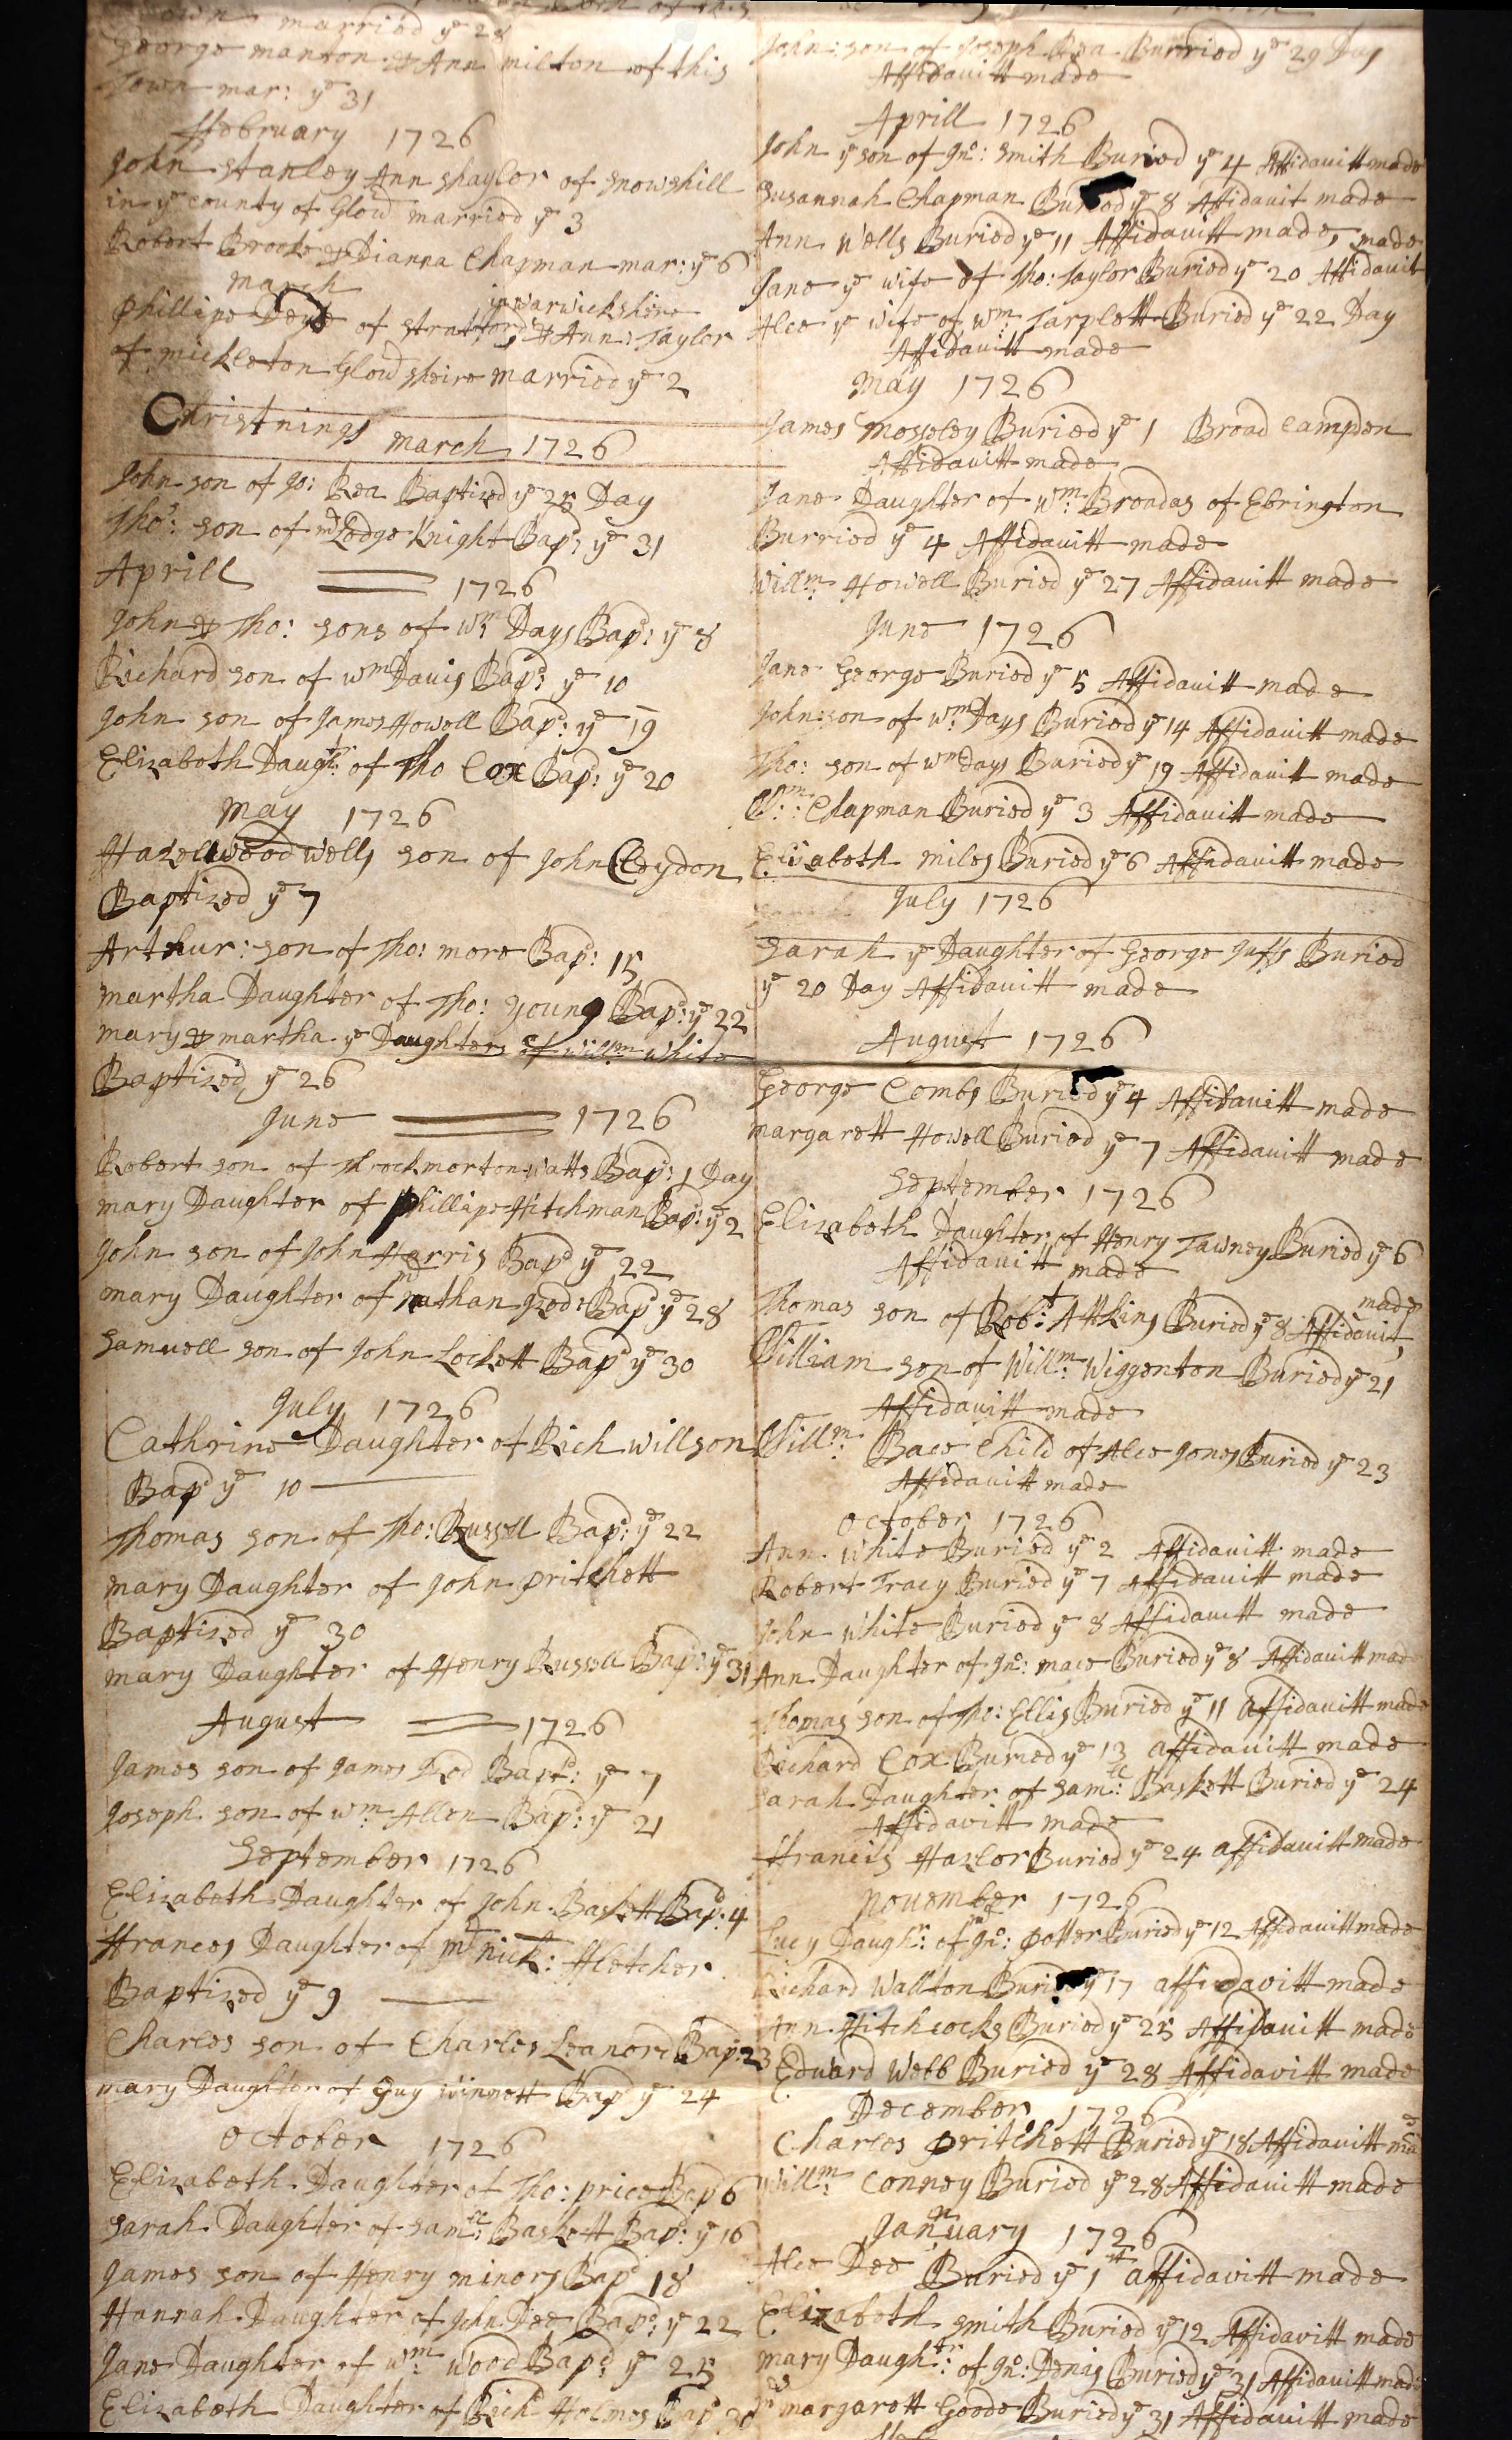 married ye 28
George manton & Ann milton of this
Town mar: ye 31
ffebruary 1726
John Stanley Ann shaylor of snowshill
in ye county of Gloud married ye 3
Robert Brooke & Dianna Chapman mar: ye 6
march
in warwickshire
Phillipe of stratford & Ann: Taylor
of mickleton Gloudsheire married ye 2
Christnings march 1726
John son of Jo: Rea Baptized ye 25 Day
Tho: son of mr Lodge Knight Bapd: ye 31
Aprill 1726
John & Tho: sons of Wm Days Bapd: ye 8
Richard son of Wm Dauis Bapd: ye 10
John son of James Howell Bapd: ye 19
Elizabeth Daughtr: of Tho Cox Bapd: ye 20
May 1726
Hazellwood Wells son of John Cleydon
Baptized ye 7
Arthur: son of Tho: more Bapd: 15
martha Daughter of Tho: young Bapd: ye 22
mary & martha ye Daughters of Willm White
Baptized ye 26
June 1726
Robert son of Throckmorton Watts Bapd: 1 Day
mary Daughter of Phillipe Hitchman Bapd: ye 2
John son of John Harris Bapd ye 22
mary Daughter of nathan Bapd ye 28
Samuell son of John Lockett Bapd ye 30
July 1726
Cathrine Daughter of Rich willson
Bapd ye 10
Thomas son of Tho: Russell Bapd: ye 22
mary Daughter of John pritchett
Baptized ye 30
mary Daughter of Henry Russell Bapd: ye 31
August 1726
James son of James Bapt: ye 7
Joseph son of Wm Allen Bapd: ye 21
September 1726
Elizabeth Daughter of John Baskett Bapd: 4
ffrances Daughter of mr nick: ffletcher
Baptized ye 9
Charles son of Charles Leanord Bapd: 23
mary Daughter of Guy Winnett Bapd ye 24
October 1726
Elizabeth Daughter of Tho: price Bapd 6
Sarah Daughter of Samll: Baskett Bapd: ye 16
James son of Henry minors Bapd 18
Hannah Daughter of John Dee Bapd: ye 22
Jane Daughter of Wm: Wood Bapd: ye 25
Elizabeth Daughter of Rich: Holmes Bapd
John: son of Joseph Rea Burried ye 29 Day
Affidauitt made
Aprill 1726
John ye son of Jno: Smith Buried ye 4 Affidauitt made
Susannah Chapman Buried ye 8 Affidauit made
Ann Wells Buried ye 11 Affidauitt made, made
Jane ye wife of Tho: Taylor Buried ye 20 Affidauit
Alce ye wife of Wm Tarplett Buried ye 22 Day
Affidauitt made
May 1726
James Mosseley Buried ye 1 Broad Campden
Affidauitt made
Jane Daughter of Wm: Broadas of Ebrington
Burried ye 4 Affidauitt made
Willm: Howell Buried ye 27 Affidauitt made
June 1726
Jane George Buried ye 5 Affidauitt made
John: son of Wm: Days Buried ye 14 Affidauitt made
Tho: son of Wm days Buried ye 19 Affidauitt made
Wm: Chapman Buried ye 3 Affidauitt made
Elizabeth miles Buried ye 6 Affidauitt made
July 1726
Sarah ye Daughter of George Juffs Buried
ye 20 Day Affidauitt made
August 1726
George Combs Buried ye 4 Affidauitt made
margarett Howell Buried ye 7 Affidauitt made
September 1726
Elizabeth Daughter of Henry Tawney Buried ye 6
Affidauitt made
made
Thomas son of Robt: Attkins Buried ye 8 Affidauit,
William son of Willm: Wiggenton Buried ye 21
Affidauitt made
Willm: Bace Child of Alce Jones Buried ye 23
Affidauitt made
October 1726
Ann White Buried ye 2 Affidauitt made
Robert Tracy Buried ye 7 Affidauitt made
John White Buried ye 8 Affidauitt made
Ann Daughter of Jno: mace Buried ye 8 Affidauitt made
Thomas son of Tho: Ellis Buried ye 11 affidauitt made
Richard Cox Buried ye 13 affidauitt made
Sarah Daughter of Samll: Baskett Buried ye 24
Affidavitt made
ffrancis Hazlor Buried ye 24 affidauitt made
november 1726
Lucy Daughtr: of Jno: potter Buried ye 12 Affidauitt made
Richard Wallton Buried ye 17 affidavitt made
Ann Hitchcocks Buried ye 25 Affidauitt made
Edward Webb Buried ye 28 Affidavitt made
December 1726
Charles pritchett Buried ye 18 Affidavitt made
Willm: Conney Buried ye 28 Affidavitt made
January 1726
Alce Dee Buried ye 1st affidavitt made
Elizabeth Smith Buried ye 12 Affidavitt made
mary Daughtr: of Jno: Denis Buried ye 31 Affidauitt made
mrs margarett Goode Buried ye 31 Affidauitt made